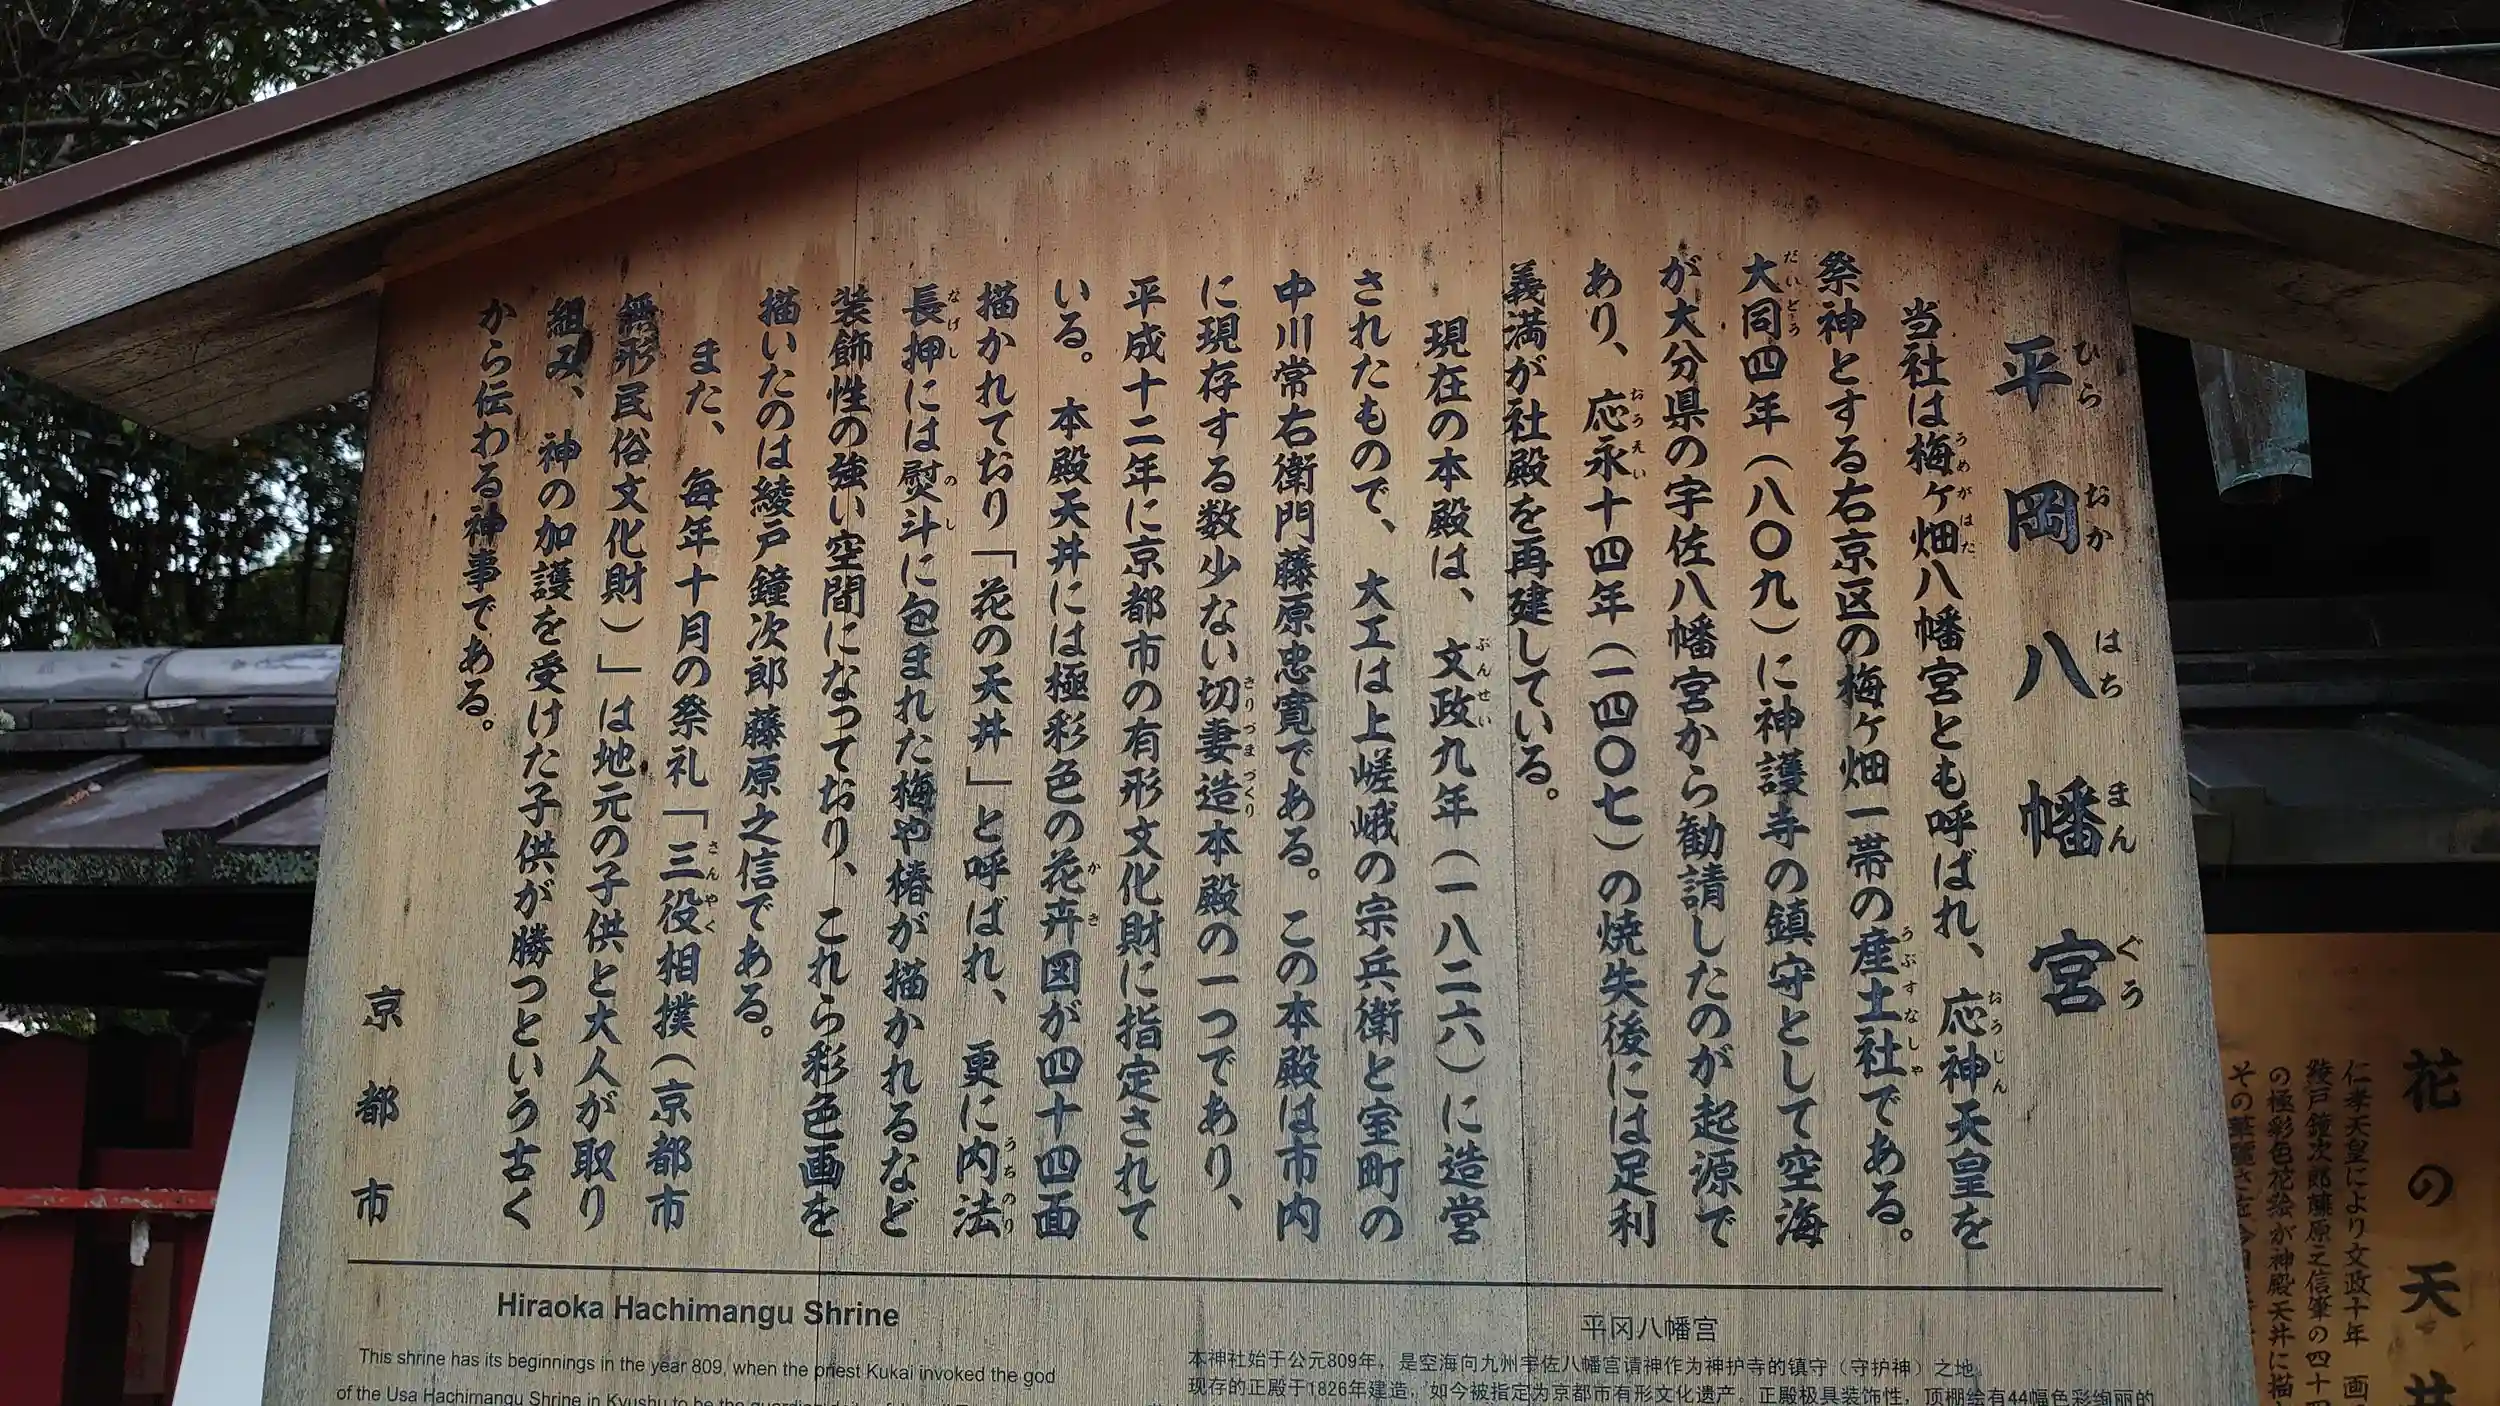 平岡八幡宮
ひらおかはちまんぐう
当社は梅ヶ畑八幡宮とも呼ばれ、応神天皇を
祭神とする右京区の梅ヶ畑一帯の産土社である。
大同四年(八〇九)に神護寺の鎮守として空海
が大分県の宇佐八幡宮から勧請したのが起源で
あり、応永十四年(一四〇七)の焼失後には足利
義満が社殿を再建している。
現在の本殿は、文政九年(一八二六)に造営
されたもので、大工は上嵯峨の宗兵衛と室町の
中川常右衛門藤原忠寛である。この本殿は市内
に現存する数少ない切妻造本殿の一つであり、
平成十二年に京都市の有形文化財に指定されて
いる。本殿天井には極彩色の花卉図が四十四面
描かれており「花の天井」と呼ばれ、更に内法
長押には熨斗に包まれた梅や椿が描かれるなど
装飾性の強い空間になっており、これら彩色画を
描いたのは綾戸鐘次郎藤原之信である。
また、毎年十月の祭礼「三役相撲(京都市
無形民俗文化財)」は地元の子供と大人が取り
組み、神の加護を受けた子供が勝つという古く
から伝わる神事である。
京都市
Hiraoka Hachimangu Shrine
This shrine has its beginnings in the year 809, when the priest Kukai invoked the god
of the Usa Hachimangu Shrine in Kyushu to be the guardian
平冈八幡宫
本神社始于公元809年，是空海向九州宇佐八幡宫请神作为神护寺的镇守（守护神）之地。
现存的正殿于1826年建造，如今被指定为京都市有形文化遗产。正殿极具装饰性，顶棚绘有44幅色彩绚丽的
花の天井
仁孝天皇により文政十年 画
綾戸鐘次郎藤原之信筆の四十四
の極彩色花絵が神殿天井に描